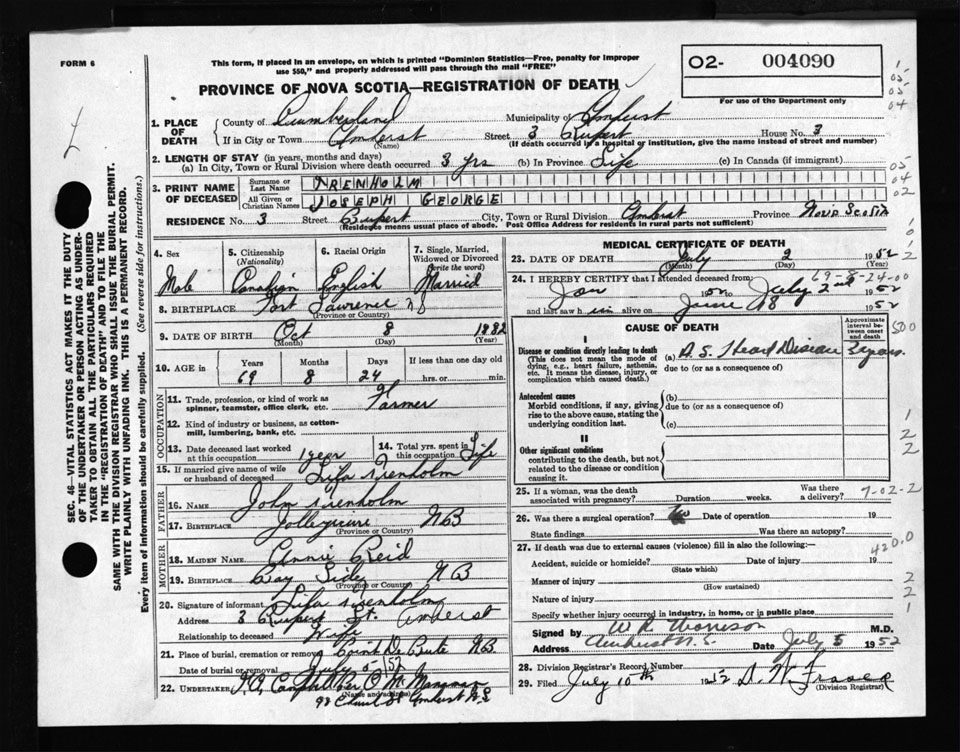 FORM 6
This form, if placed in an envelope, on which is printed "Dominion Statistics—Free, penalty for improper
use $50," and properly addressed will pass through the mail "FREE"
O2- 004090
For use of the Department only
PROVINCE OF NOVA SCOTIA—REGISTRATION OF DEATH
1. PLACE OF DEATH
County of Cumberland Municipality of Amherst
If in City or Town Amherst Street 3 Rupert House No. 3
(Name) (If death occurred in a hospital or institution, give the name instead of street and number)
2. LENGTH OF STAY (in years, months and days)
(a) In City, Town or Rural Division where death occurred 3 yrs (b) In Province Life (c) In Canada (if immigrant)
3. PRINT NAME OF DECEASED
Surname or Last Name TRENHOLM
All Given or Christian Names JOSEPH GEORGE
RESIDENCE No. 3 Street Rupert City, Town or Rural Division Amherst Province Nova Scotia
(Residence means usual place of abode. Post Office Address for residents in rural parts not sufficient)
4. Sex 5. Citizenship (Nationality) 6. Racial Origin 7. Single, Married, Widowed or Divorced (write the word)
Male Canadian English Married
8. BIRTHPLACE Fort Lawrence NS
(Province or Country)
9. DATE OF BIRTH Oct 8 1882
(Month) (Day) (Year)
10. AGE in Years Months Days If less than one day old
69 8 24 hrs. or min.
OCCUPATION
11. Trade, profession, or kind of work as spinner, teamster, office clerk, etc. Farmer
12. Kind of industry or business, as cotton-mill, lumbering, bank, etc.
13. Date deceased last worked at this occupation 1 year
14. Total yrs. spent in this occupation Life
15. If married give name of wife or husband of deceased Lifa Trenholm
FATHER
16. Name John Trenholm
17. Birthplace Jolleycure NB
(Province or Country)
MOTHER
18. Maiden Name Annie Reid
19. Birthplace Bay Side NB
(Province or Country)
20. Signature of informant Lifa Trenholm
Address 3 Rupert St. Amherst
Relationship to deceased Wife
21. Place of burial, cremation or removal Point De Bute NB
Date of burial or removal July 5 '52
22. UNDERTAKER Campbell Per
(Name and address)
Amherst N.S.
MEDICAL CERTIFICATE OF DEATH
23. DATE OF DEATH July 2 1952
(Month) (Day)
69-8-24-00
24. I HEREBY CERTIFY that I attended deceased from:
Jan 1952 to July 2nd 1952
and last saw him alive on June 28 1952
CAUSE OF DEATH
Approximate interval between onset and death
I
Disease or condition directly leading to death
(This does not mean the mode of dying, e.g., heart failure, asthenia, etc. It means the disease, injury, or complication which caused death.)
(a) A. S. Heart Disease 3 years
due to (or as a consequence of)
Antecedent causes
Morbid conditions, if any, giving rise to the above cause, stating the underlying condition last.
(b)
due to (or as a consequence of)
(c)
II
Other significant conditions
contributing to the death, but not related to the disease or condition causing it.
25. If a woman, was the death associated with pregnancy? Duration weeks. Was there a delivery?
7-02-2
26. Was there a surgical operation? No Date of operation 19
State findings Was there an autopsy?
27. If death was due to external causes (violence) fill in also the following:—
Accident, suicide or homicide? Date of injury 19
(State which)
420.0
Manner of injury
(How sustained)
Nature of injury
Specify whether injury occurred in industry, in home, or in public place
Signed by W R Morrison M.D.
Address Amherst N.S. Date July 5 1952
28. Division Registrar's Record Number
29. Filed July 10th 1952 D. W. Fraser
(Division Registrar)
SEC. 46—VITAL STATISTICS ACT MAKES IT THE DUTY
OF THE UNDERTAKER OR PERSON ACTING AS UNDER-
TAKER TO OBTAIN ALL THE PARTICULARS REQUIRED
IN THE "REGISTRATION OF DEATH" AND TO FILE THE
SAME WITH THE DIVISION REGISTRAR WHO SHALL ISSUE THE BURIAL PERMIT.
WRITE PLAINLY WITH UNFADING INK. THIS IS A PERMANENT RECORD.
Every item of information should be carefully supplied. (See reverse side for instructions.)